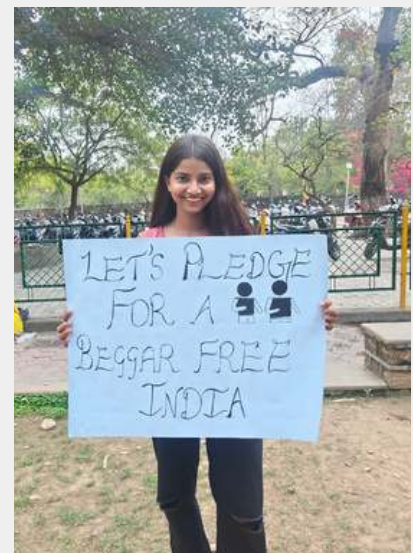 LET'S PLEDGE
FOR A
BEGGAR FREE
INDIA